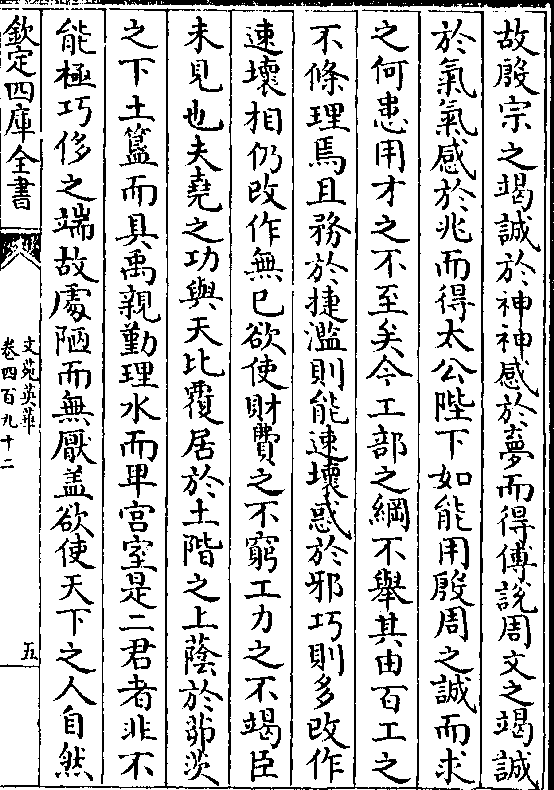 故殷宗之竭誠於神神感於夢而得傅說周文之竭誠
於氣氣感於兆而得太公陛下如能用殷周之誠而求
之何患用才之不至矣今工部之綱不舉其由百工之
不條理焉且務於捷濫則能速壊惑於邪巧則多改作
速壞相仍改作無已欲使財費之不窮工力之不竭臣
未見也夫堯之功與天比覆居於土階之上蔭於茆茨
之下土簋而具禹親勤理水而卑宫室是二君者非不
能極巧侈之端故處陋而無厭盖欲使天下之人自然
欽定四庫全書
文苑英華
卷四百九十二
五